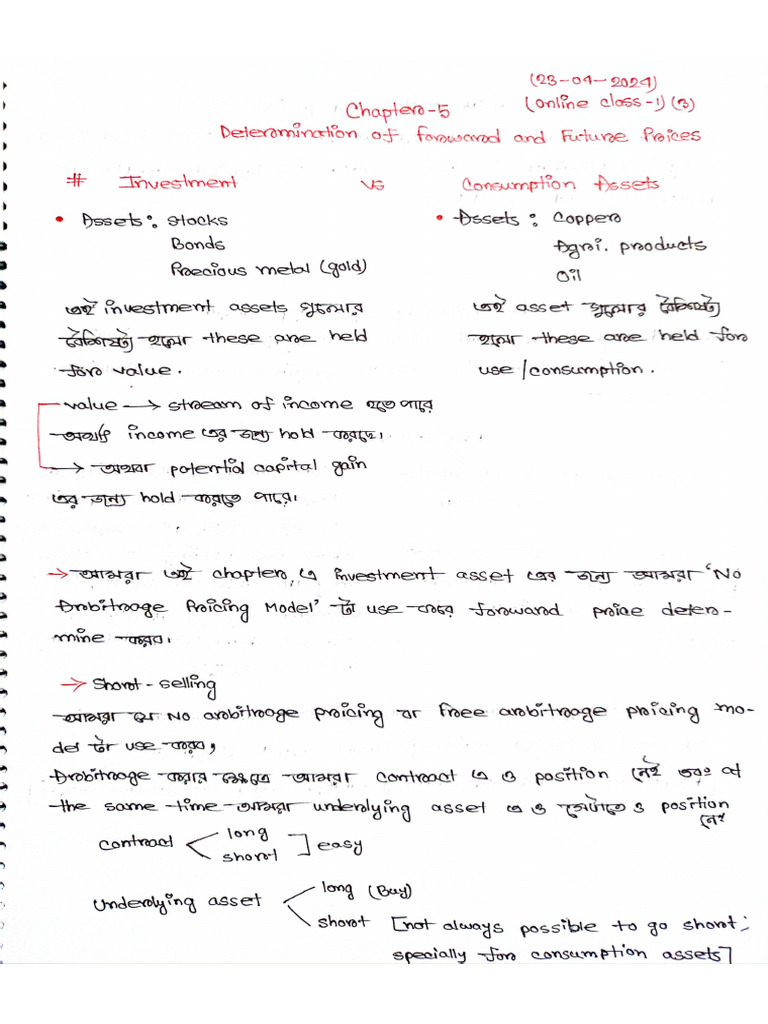 (23-04-2024)
Chapter-5 (online class-1) (3)
Determination of forward and Future Prices
# Investment vs Consumption Assets
• Assets: stocks
Bonds
Precious metal (gold)
এই investment assets গুলোর
বৈশিষ্ট্য হলো these are held
for value.
• Assets: Copper
Agri. products
Oil
এই asset গুলোর বৈশিষ্ট্য
হলো these are held for
use/consumption.
value → stream of income হতে পারে
অর্থাৎ income এর জন্য hold করছে।
→ অথবা potential capital gain
এর জন্য hold করতে পারে।
→ আমরা এই chapter এ investment asset এর জন্য আমরা 'No
Arbitrage Pricing Model' টা use করে forward price deter-
mine করব।
→ Short-selling
আমরা যে No arbitrage pricing or free arbitrage pricing mo-
del টা use করব,
Arbitrage করার ক্ষেত্রে আমরা contract এ ও position নেই এবং at
the same time আমরা underlying asset এ ও সেটাতে ও position
নেই
contract < long
short ] easy
underlying asset < long (Buy)
short [not always possible to go short;
specially for consumption assets]